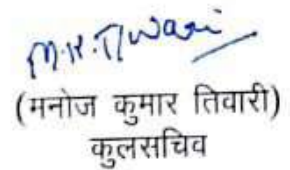 M.K. Tiwari
(मनोज कुमार तिवारी)
कुलसचिव